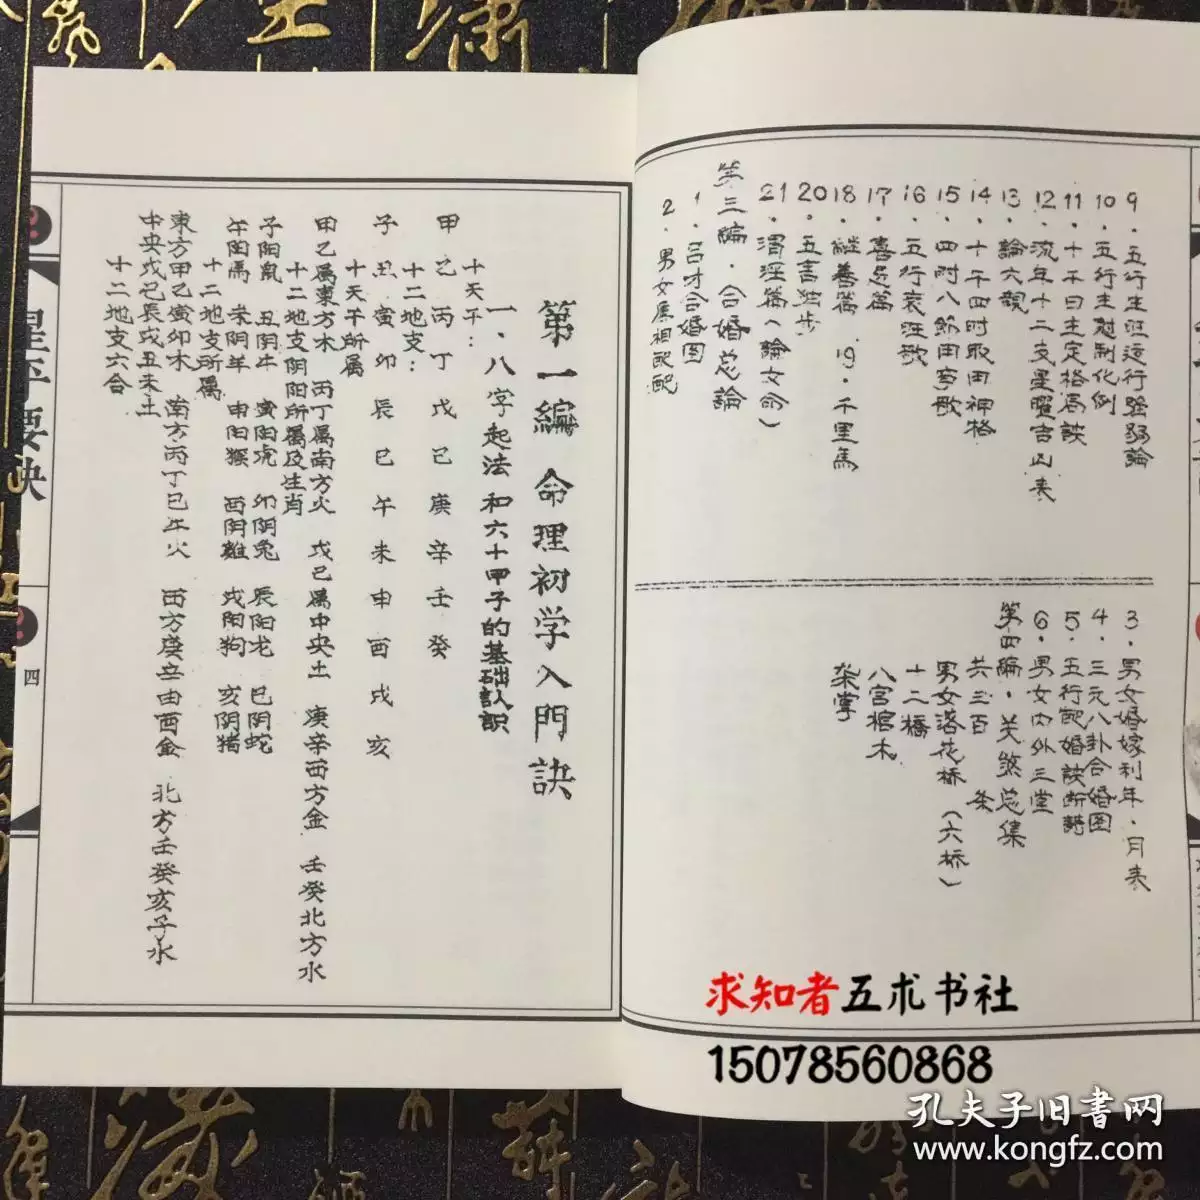 9．五行生旺运行强弱論
10．五行生尅制化例
11．十干日主定格局訣
12．流年十二支星曜吉凶表
13．論六親
14．十干四时取用神格
15．四时八節用事歌
16．五行衰旺歌
17．喜忌篇
18．継善篇　19．千里馬
20．五言独步
21．渭泾篇（論女命）
第三編．合婚总論
1．吕才合婚图
2．男女屬相配配
3．男女婚嫁利年．月表
4．三元八卦合婚图
5．五行配婚訣断詩
6．男女内外三堂
第四編．关煞总集
共三百　条
男女落花桥（六桥）
十二橋
八宫棺木
架掌
第一編 命理初学入門訣
一．八字起法和六十甲子的基础认识
十天干：
甲乙丙丁戊己庚辛壬癸
十二地支：
子丑寅卯辰巳午未申酉戌亥
十天干所属
甲乙属東方木　丙丁属南方火　戊己属中央土　庚辛西方金　壬癸北方水
十二地支阴阳所属及生肖
子阳鼠　丑阴牛　寅阳虎　卯阴兔　辰阳龙　巳阴蛇
午阳馬　未阴羊　申阳猴　酉阴雞　戌阳狗　亥阴猪
十二地支所属
東方甲乙寅卯木　南方丙丁巳午火　西方庚辛申酉金　北方壬癸亥子水
中央戊己辰戌丑未土
十二地支六合
星平要诀
四
求知者五术书社
15078560868
孔夫子旧書网
www.kongfz.com